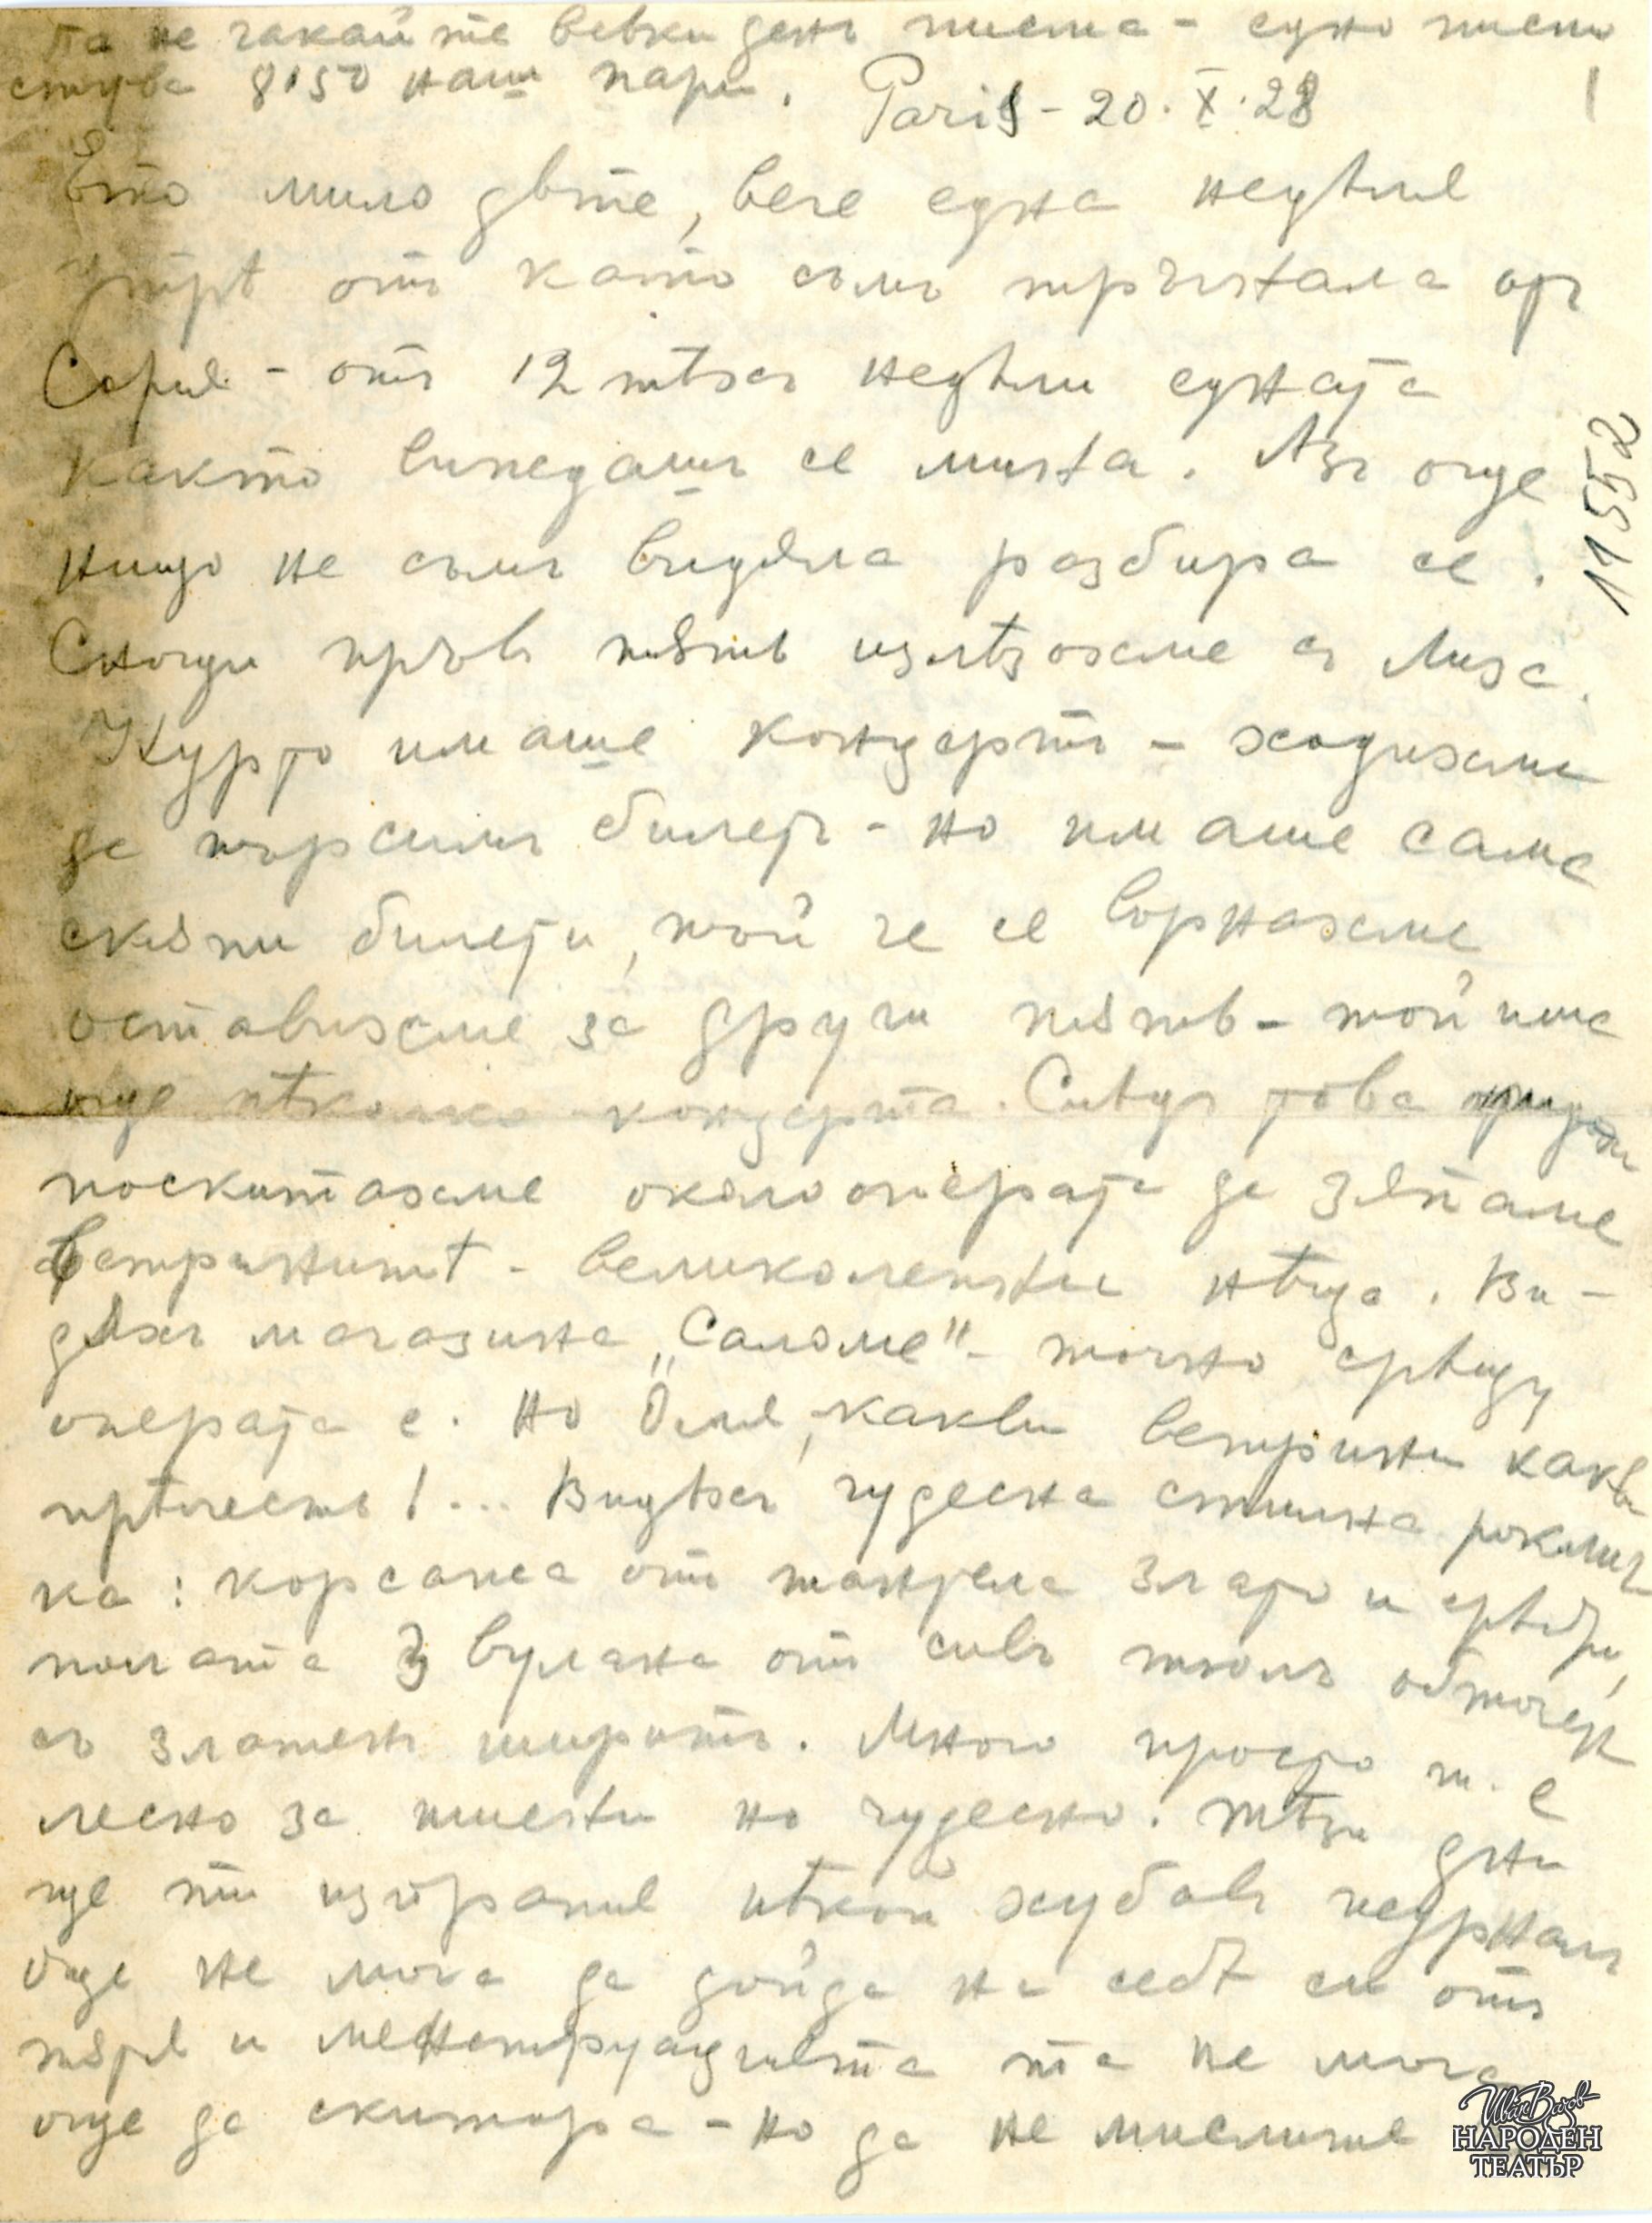 та не чакайте всѣки день писма - едно писмо
струва 8·50 наши пари.
Paris - 20. X. 28
1
Ето мило дѣте, вече една недѣля
утрѣ отъ като съмъ тръгнала отъ
София - отъ 12 тѣхъ недѣли едната
както виждашъ се мина. Азъ още
нищо не съмъ видѣла разбира се.
Снощи пръвъ пѫть излѣзохме съ Лиза.
имаше концертъ - ходихме
да търсимъ билетъ - но имаше само
скѫпи билети, той че се върнахме
оставихме за други пѫть - той има
още нѣколко концерта. Следъ това
поскитахме около операта да зяпаме
витринитѣ - великолепни нѣща. Ви-
дѣхъ магазина „Саломе" - точно срѣщу
операта е. Но Оля, какви витрини какви
прѣлести!... Видѣхъ чудесна стилна роклич
ка: корсажа отъ дантела злато и срѣбро,
полата 3 волана отъ сивъ тюлъ обточен
съ златенъ ширитъ. Много просто т. е
лесно за но чудесно. Тѣзи дни
ще ти изпратя нѣкой хубавъ журналъ
Още не мога да дойда на себѣ си отъ
пѫтя и менструацията та не мога
още да скитора - но да не мислите
11552
Иван Вазов
НАРОДЕН
ТЕАТЪР